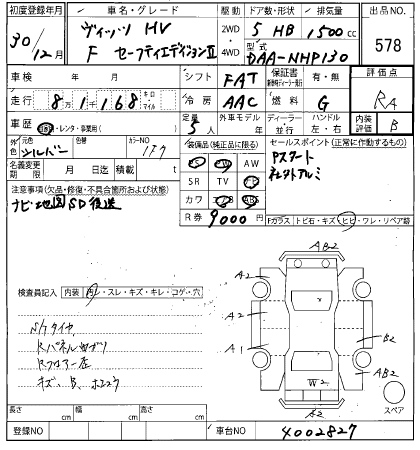 初度登録年月 車名・グレード 駆動 ドア数・形状 排気量 出品NO.
30/12月 ヴィッツ HV 2WD 5 HB 1500cc 578
F セーフティエディションⅡ 4WD 型式 DAA-NHP130
車検 年 月 シフト FAT 保証書 有・無 評価点
走行 8万1千168 キロ マイル 冷房 AAC 燃料 G RA
車歴 レンタ・事業用( ) 定員 5人 外車モデル 年 ディーラー 並行 ハンドル 左・右 内装 B
外色 元色 シルバー 色替 カラーNO 1F7 装備品(純正品に限る) セールスポイント(正常に作動するもの)
名義変更期限 月 日迄 積載 t PS PW AW Pスタート
SR TV ナビ 社外アルミ
注意事項(欠品・修復・不具合箇所および状態) カワ エアB ABS
ナビ地図SD後送 R券 9000円 Fガラス トビ石・キズ・ヒビ・ワレ・リペア跡
AB2
検査員記入 内装 汚レ・スレ・キズ・キレ・コゲ・穴 A2
S/Tタイヤ A2
A1 B2
Rフロアー
キズ、B、 W2 AB2
A2 スペア
長さ cm 幅 cm 高さ cm
登録NO 車台NO 4002827